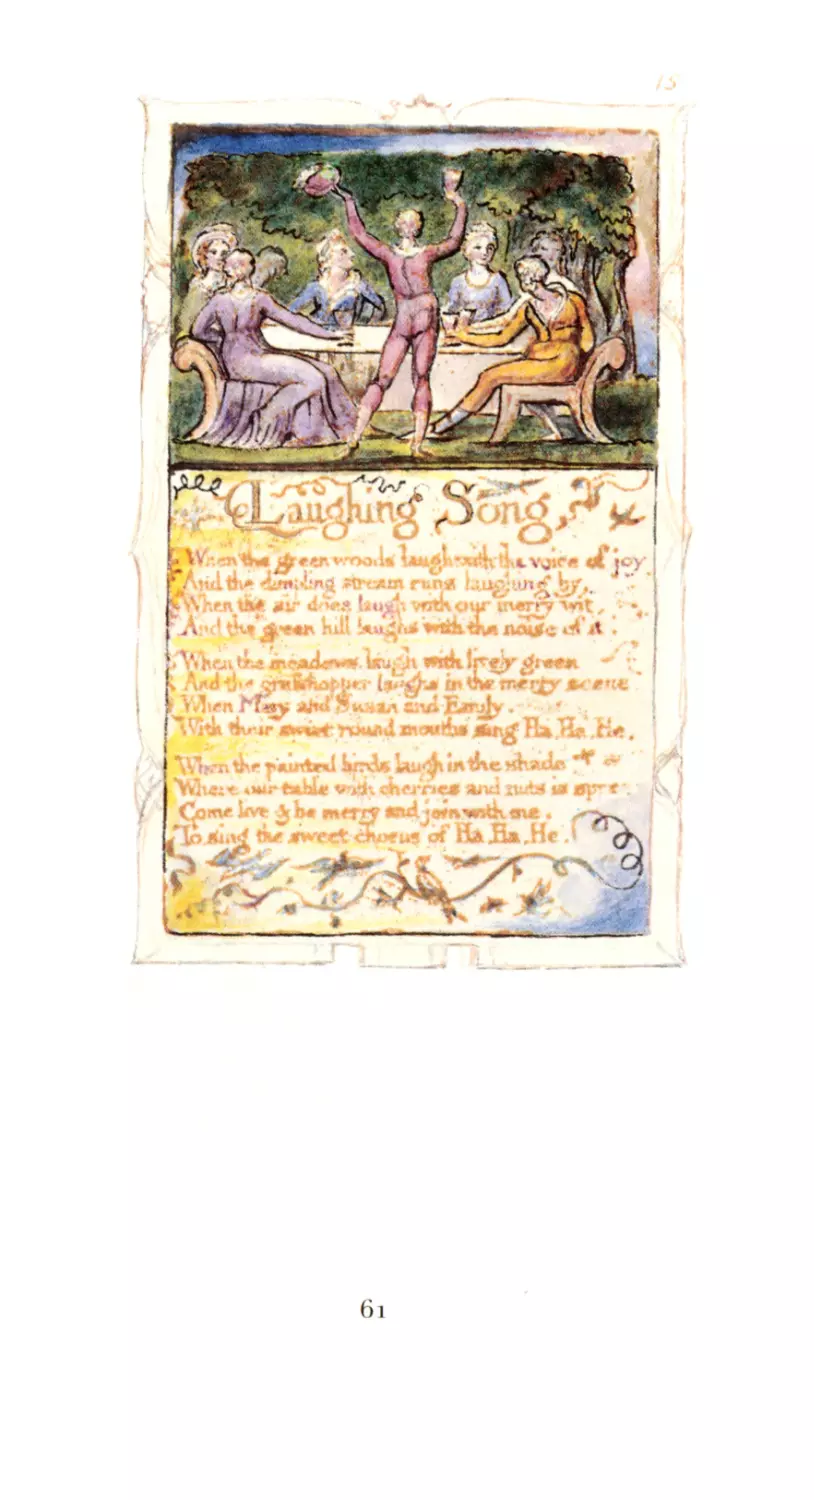 15
Laughing Song,
When the green woods laugh with the voice of joy
And the dimpling stream runs laughing by,
When the air does laugh with our merry wit,
And the green hill laughs with the noise of it.
When the meadows laugh with lively green
And the grasshopper laughs in the merry scene
When Mary and Susan and Emily,
With their sweet round mouths sing Ha, Ha, He.
When the painted birds laugh in the shade
Where our table with cherries and nuts is spread
Come live & be merry and join with me,
To sing the sweet chorus of Ha, Ha, He.
61